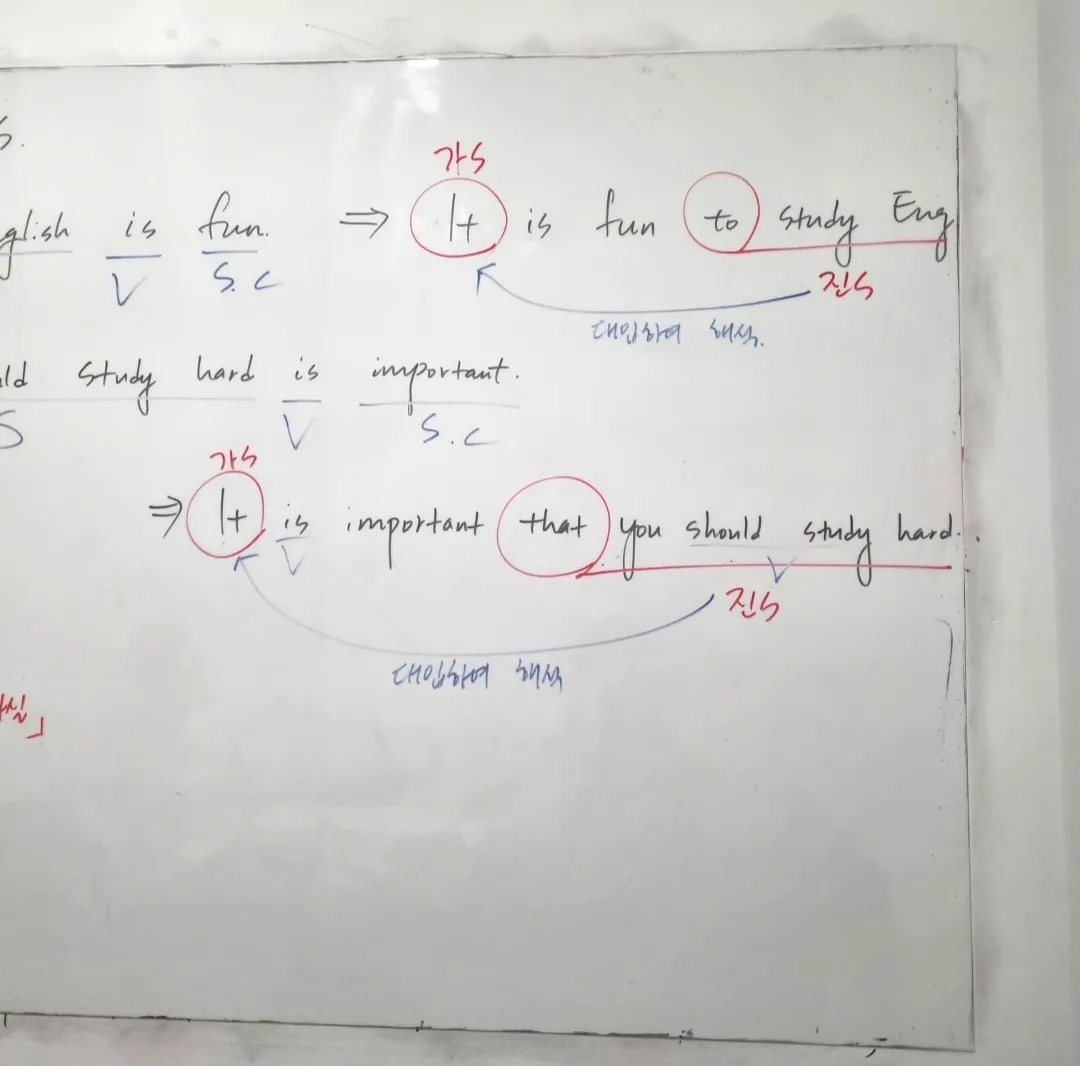 S.
가S
glish is fun. ⇒ It is fun to study Eng
V S.C 진S
대입하여 해석.
ld study hard is important.
S V S.C
가S
⇒ It is important that you should study hard.
V V 진S
대입하여 해석